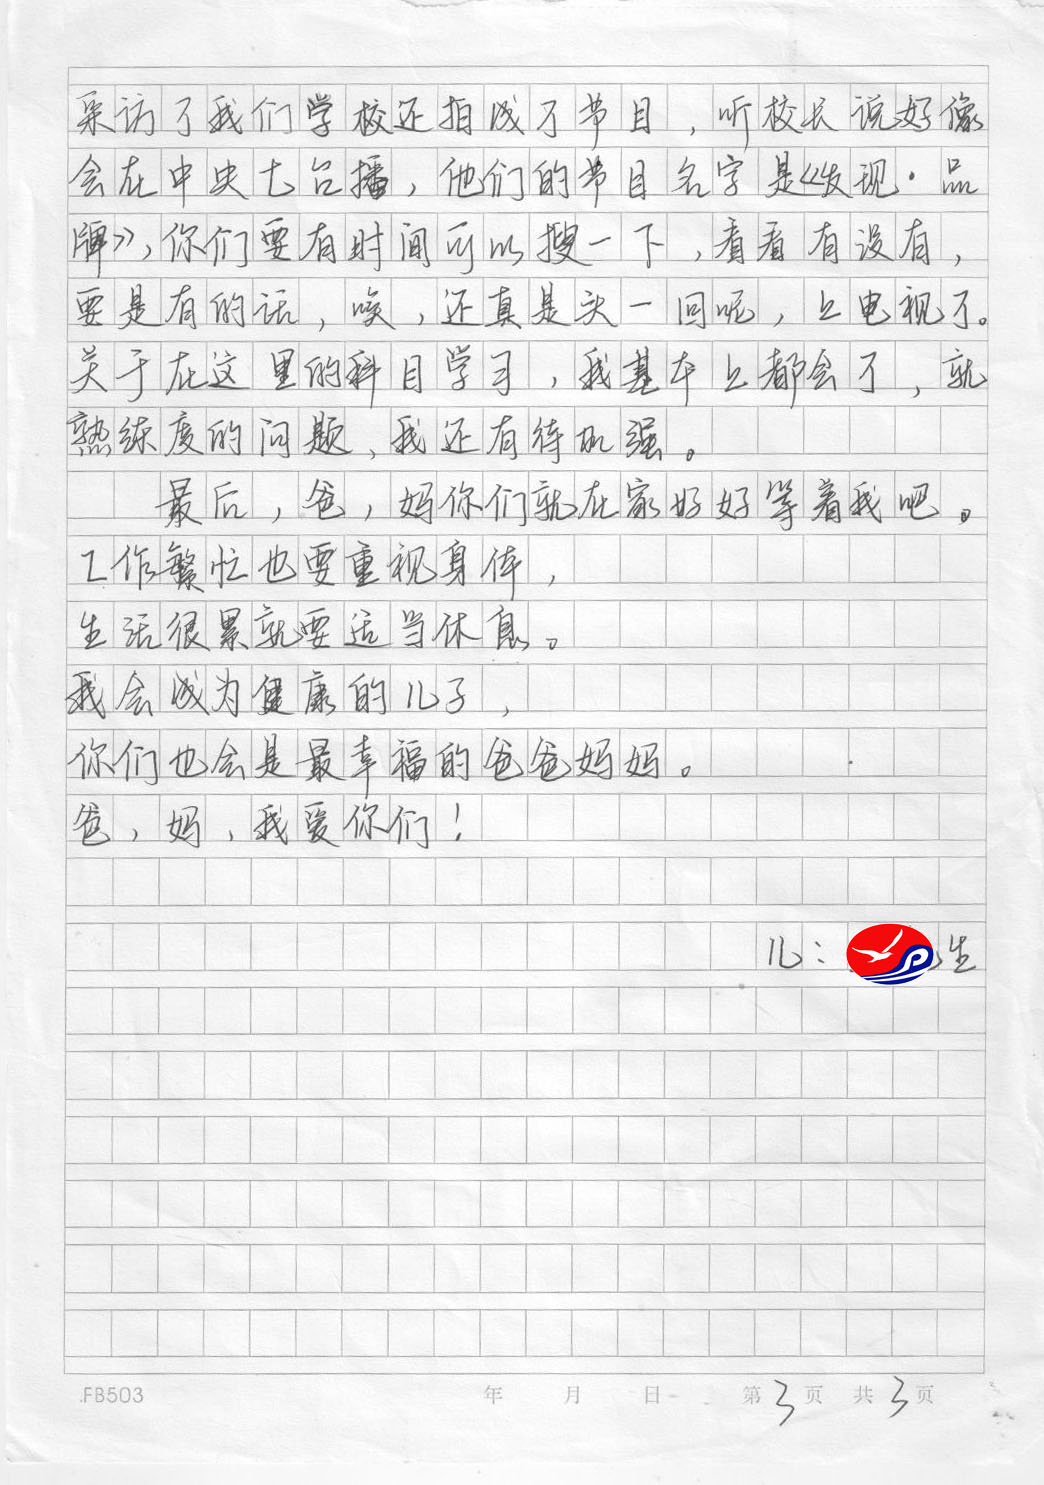 采访了我们学校还拍成了节目，听校长说好像
会在中央七台播，他们的节目名字是《发现·品
牌》，你们要有时间可以搜一下，看看有没有，
要是有的话，唉，还真是头一回呢，上电视了。
关于在这里的科目学习，我基本上都会了，就
熟练度的问题，我还有待加强。
最后，爸，妈你们就在家好好等着我吧。
工作繁忙也要重视身体，
生活很累就要适当休息。
我会成为健康的儿子，
你们也会是最幸福的爸爸妈妈。
爸，妈，我爱你们！
儿：生
.FB503 年 月 日 第3页 共3页